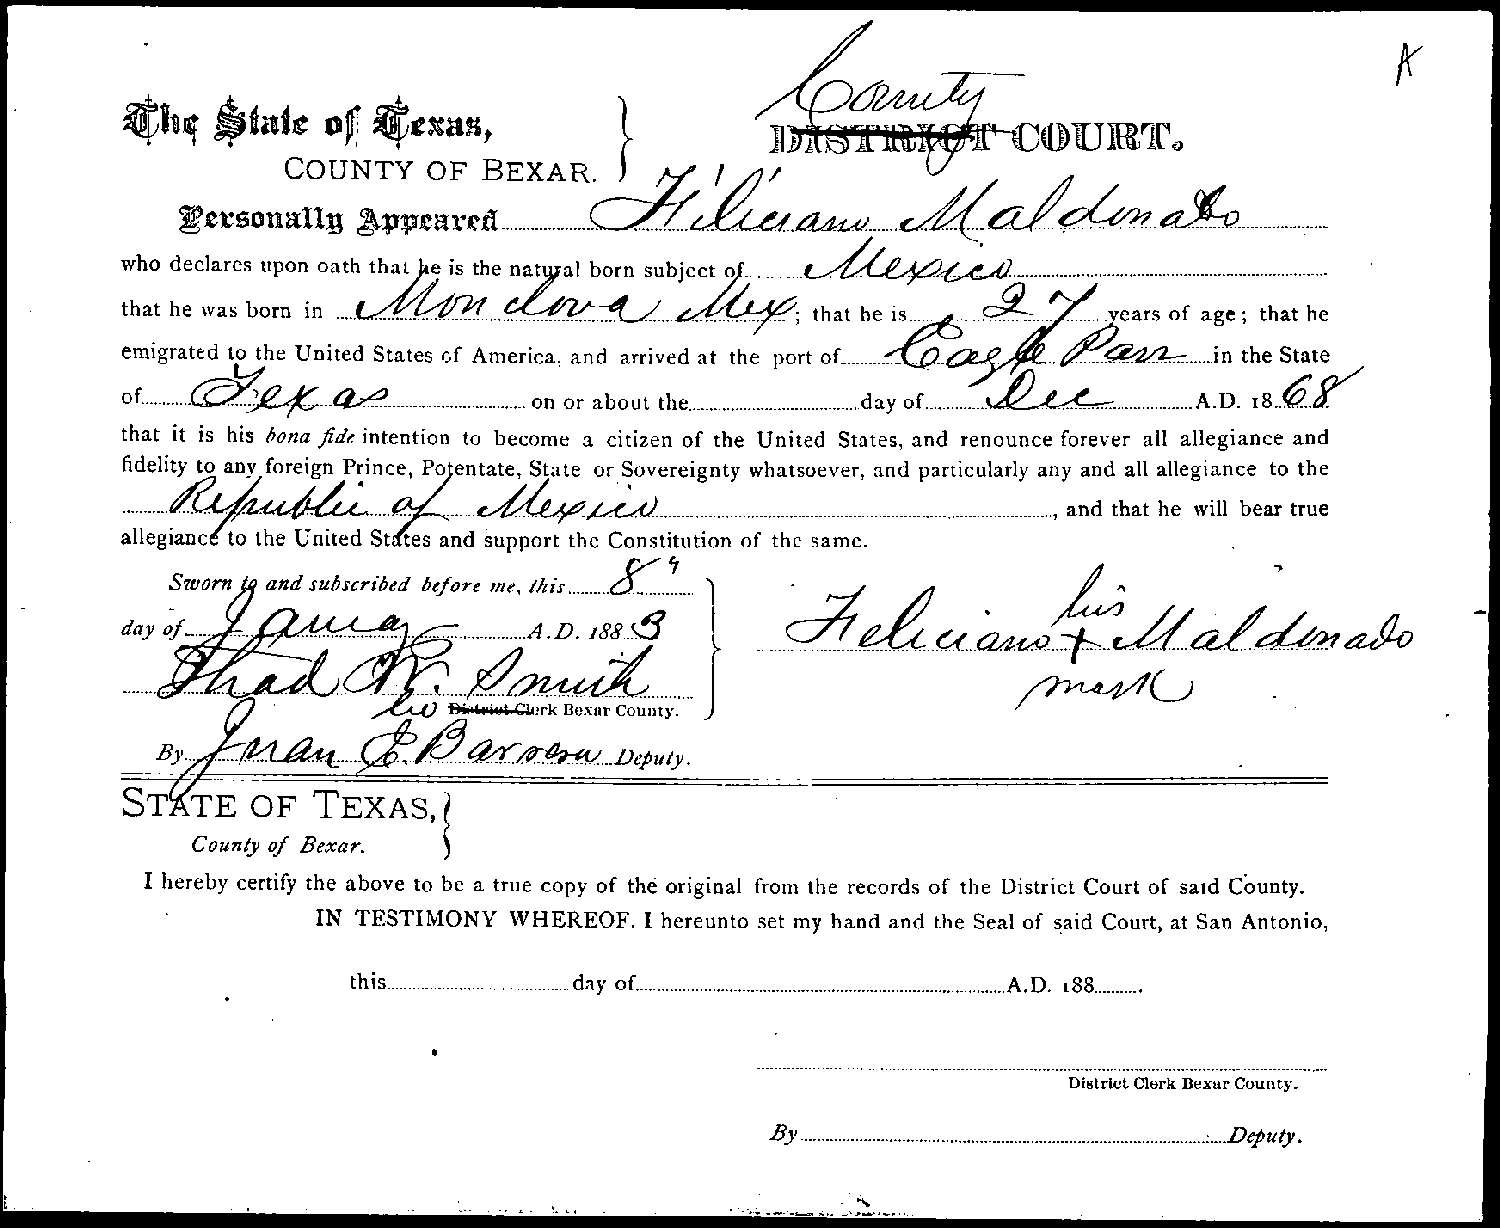 A
County
The State of Texas, } DISTRICT COURT.
COUNTY OF BEXAR.
Personally Appeared Feliciano Maldonado
who declares upon oath that he is the natural born subject of Mexico
that he was born in Monclova Mex; that he is 27 years of age; that he
emigrated to the United States of America, and arrived at the port of Eagle Pass in the State
of Texas on or about the day of Dec A.D. 1868
that it is his bona fide intention to become a citizen of the United States, and renounce forever all allegiance and
fidelity to any foreign Prince, Potentate, State or Sovereignty whatsoever, and particularly any and all allegiance to the
Republic of Mexico, and that he will bear true
allegiance to the United States and support the Constitution of the same.
Sworn to and subscribed before me, this 8"
day of Jany A.D. 1883
his
Feliciano + Maldonado
mark
Thad W. Smith
Co District Clerk Bexar County.
By Juan E. Barrera Deputy.
STATE OF TEXAS, }
County of Bexar.
I hereby certify the above to be a true copy of the original from the records of the District Court of said County.
IN TESTIMONY WHEREOF. I hereunto set my hand and the Seal of said Court, at San Antonio,
this day of A.D. 188
District Clerk Bexar County.
By Deputy.